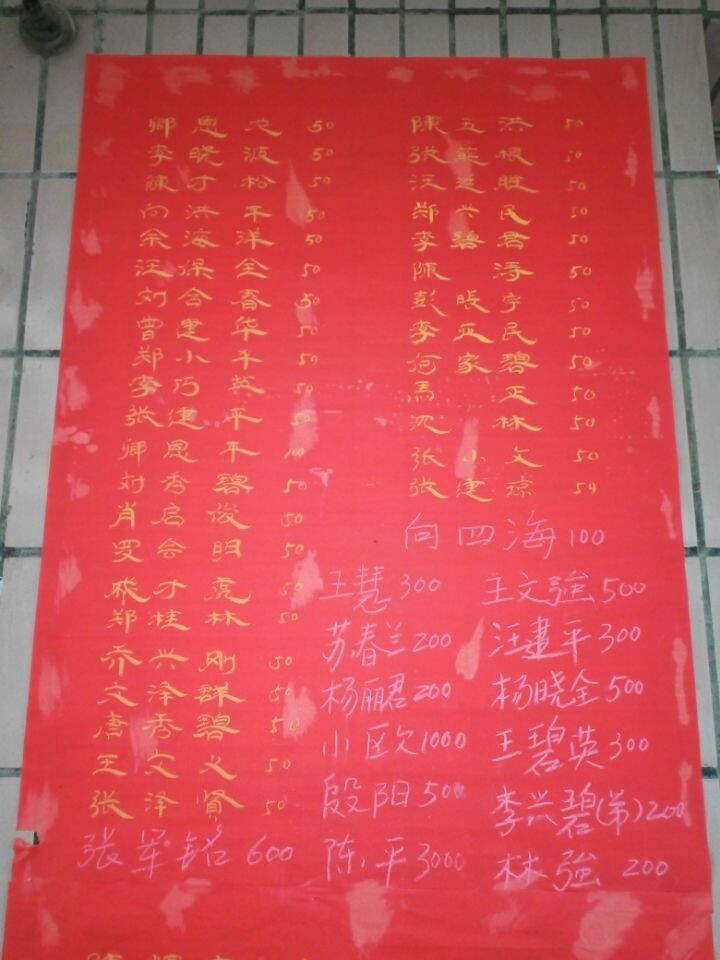 卿恩忠 50
李晓波 50
陳才松 50
向洪平 50
余海洋 50
汪保全 50
刘合春 50
曾建华 50
郑小平 50
李巧英 50
张建平 50
卿恩平 100
刘秀碧 50
肖启俊 50
罗会明 50
张才虎 50
郑桂林 50
乔兴刚 50
文泽群 50
唐秀碧 50
王文义 50
张泽贤 50
张军铭 600
陳五洪 50
张菲根 50
汪廷胜 50
郑兴民 50
李碧君 50
陳涛 50
彭晓宇 50
李正民 50
何家碧 50
馬正 50
沉林 50
张小文 50
张建琼 54
向四海 100
王慧 300
苏春兰 200
杨丽君 200
小欧 1000
殷阳 500
陈平 3000
王文強 500
汪建平 300
杨晓全 500
王碧英 300
李兴碧(弟) 200
林強 200